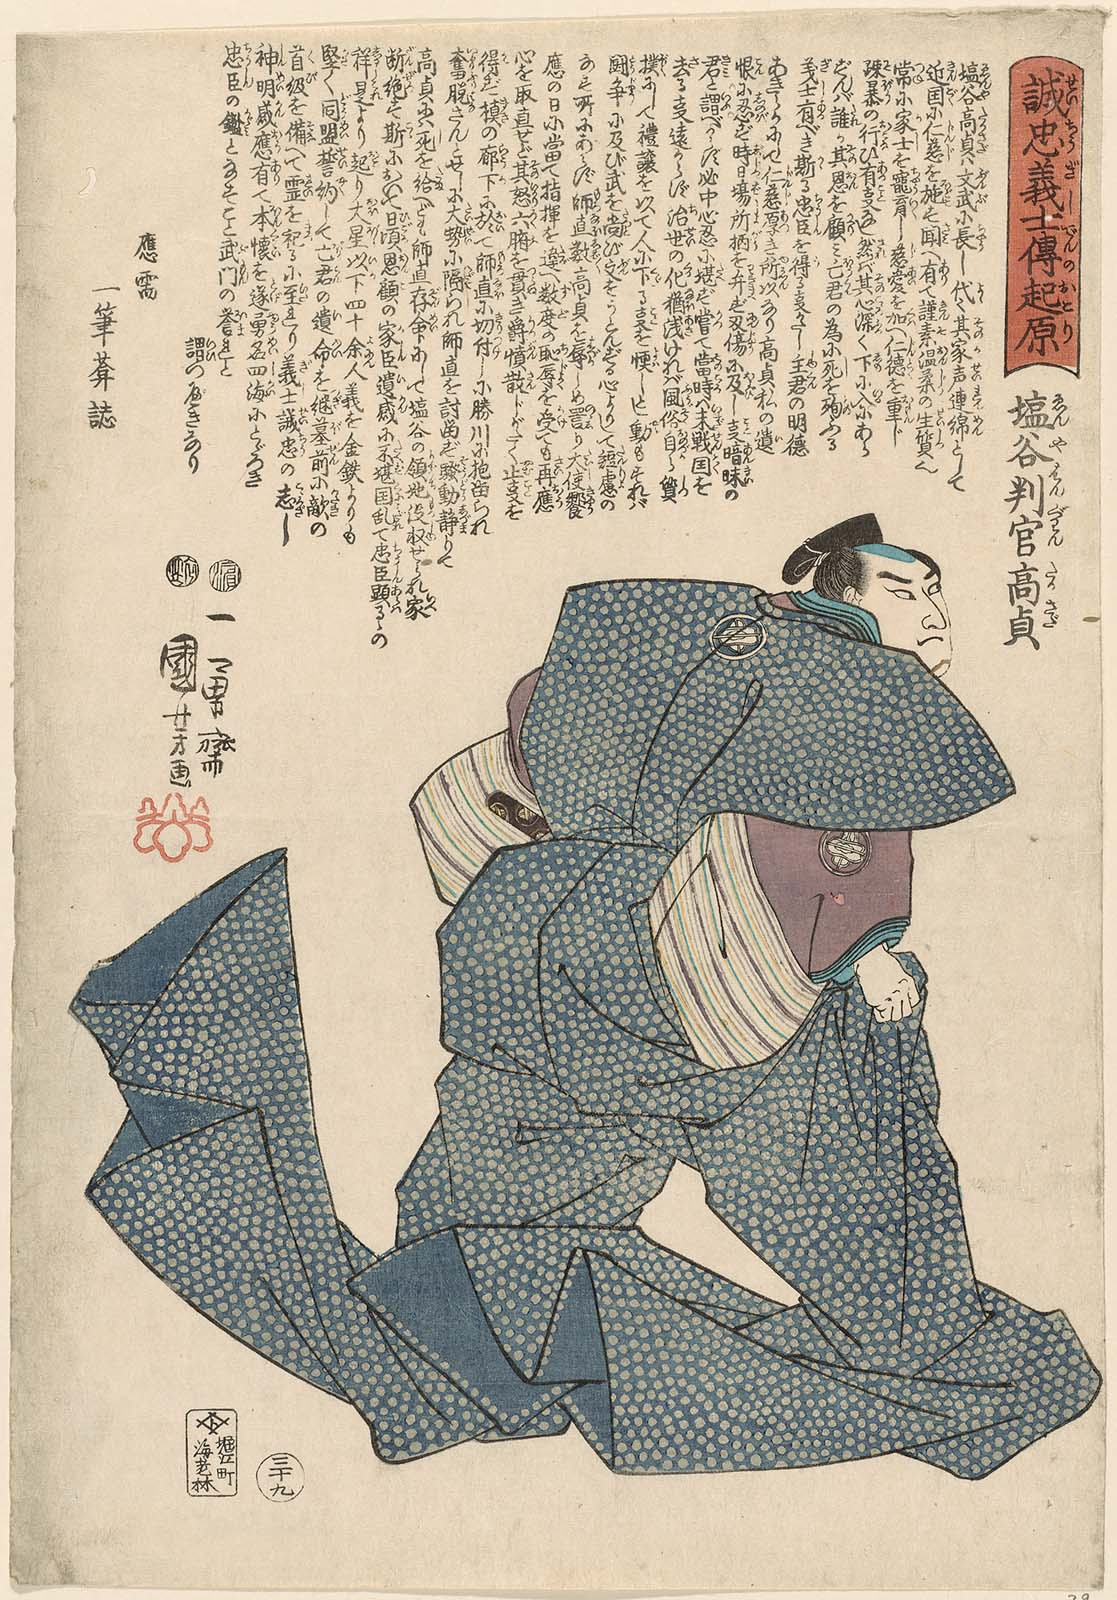 誠忠義士傳起原
せいちうぎしでんのおこり
塩谷判官高貞
ゑんやはんぐわんたかさだ
塩谷高貞ハ文武に長し代々其家声連綿として
近国に仁慈を施せ聞へ有て謹素温柔の生質
常に家士を寵育し慈愛を加へ仁徳を重じ
疎暴の行ひ有事なし然バ其心深く下に入にあら
ずんバ誰か其恩を顧ミ亡君の為に死を殉ふる
義士有べき斯る忠臣を得る主君の明徳
あきらかにせし仁慈厚き所以なり高貞私の遺
恨に忍ず時日場所柄を弁ず刃傷に及し事暗昧の
君と謂べからず必中心忍に堪ず當て當時ハ未戦国を
去る事遠からず治世の化猶浅けれバ風俗自ら質
撲にして禮譲を以て人に下る事を愧しと動もすれバ
闘争に及び武を尚び文をうとんずる心よりて短慮の
所にあらず師直数高貞を辱しめ詈り大使饗
應の日に當て指揮を違へ数度の恥辱を受ても再應
心を取直せど其怒六腑を貫き欝憤哉しがたく止事を
得ず模の廊下に於て師直に切付しに勝川に抱留られ
奮脱さんとせしに大勢に隔られ師直を討留ず騒動静りて
高貞にハ死を給へども師直存命にして塩谷の領地没収せられ家
断絶す斯において日頃恩顧の家臣遺慽に不堪国乱て忠臣顕るゝの
祥是より起り大星以下四十余人義を金鉄よりも
堅く同盟誓約して亡君の遺命を継墓前に敵の
首級を備へて霊を祀るに至れり義士誠忠の志し
神明感應有て本懐を遂勇名四海にとゞろき
忠臣の鑑となすこと武門の誉れと
謂つべきなり
應需
一筆菴誌
一勇齋
國芳画
堀江町
海老林
三十九